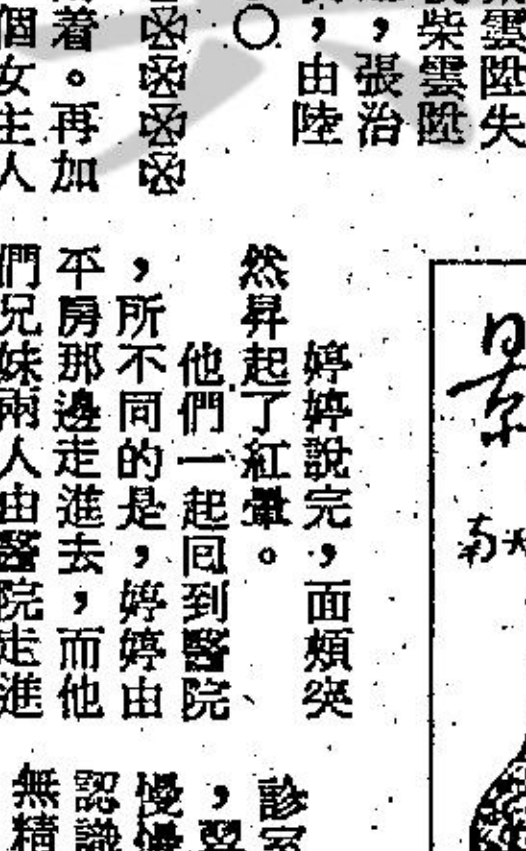 柴雲陞失
柴雲陞
，張治
，由陸
○
着。再加
個女主人
婷婷說完，面頰突
然昇起了紅暈。
他們一起回到醫院
，所不同的是，婷婷由
平房那邊走進去，而他
們兄妹兩人由醫院走進
診室
，
慢慢
認識
無精
景